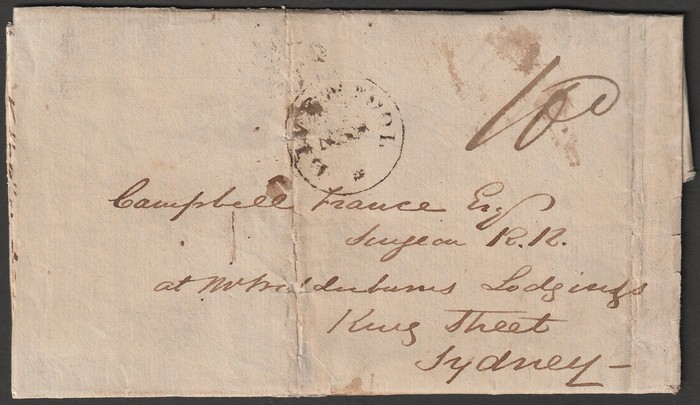 LIVERPOOL
Campbell France Esq
Surgeon R.N.
at Wedderburns Lodgings
King Street
Sydney –